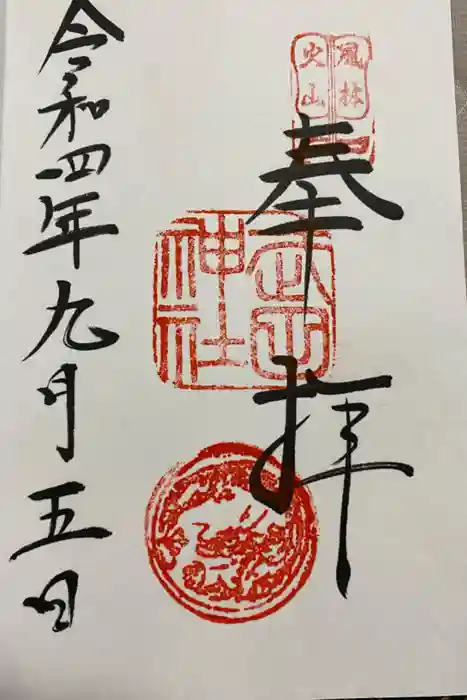 風林
火山
奉拝
武田
神社
令和四年九月五日